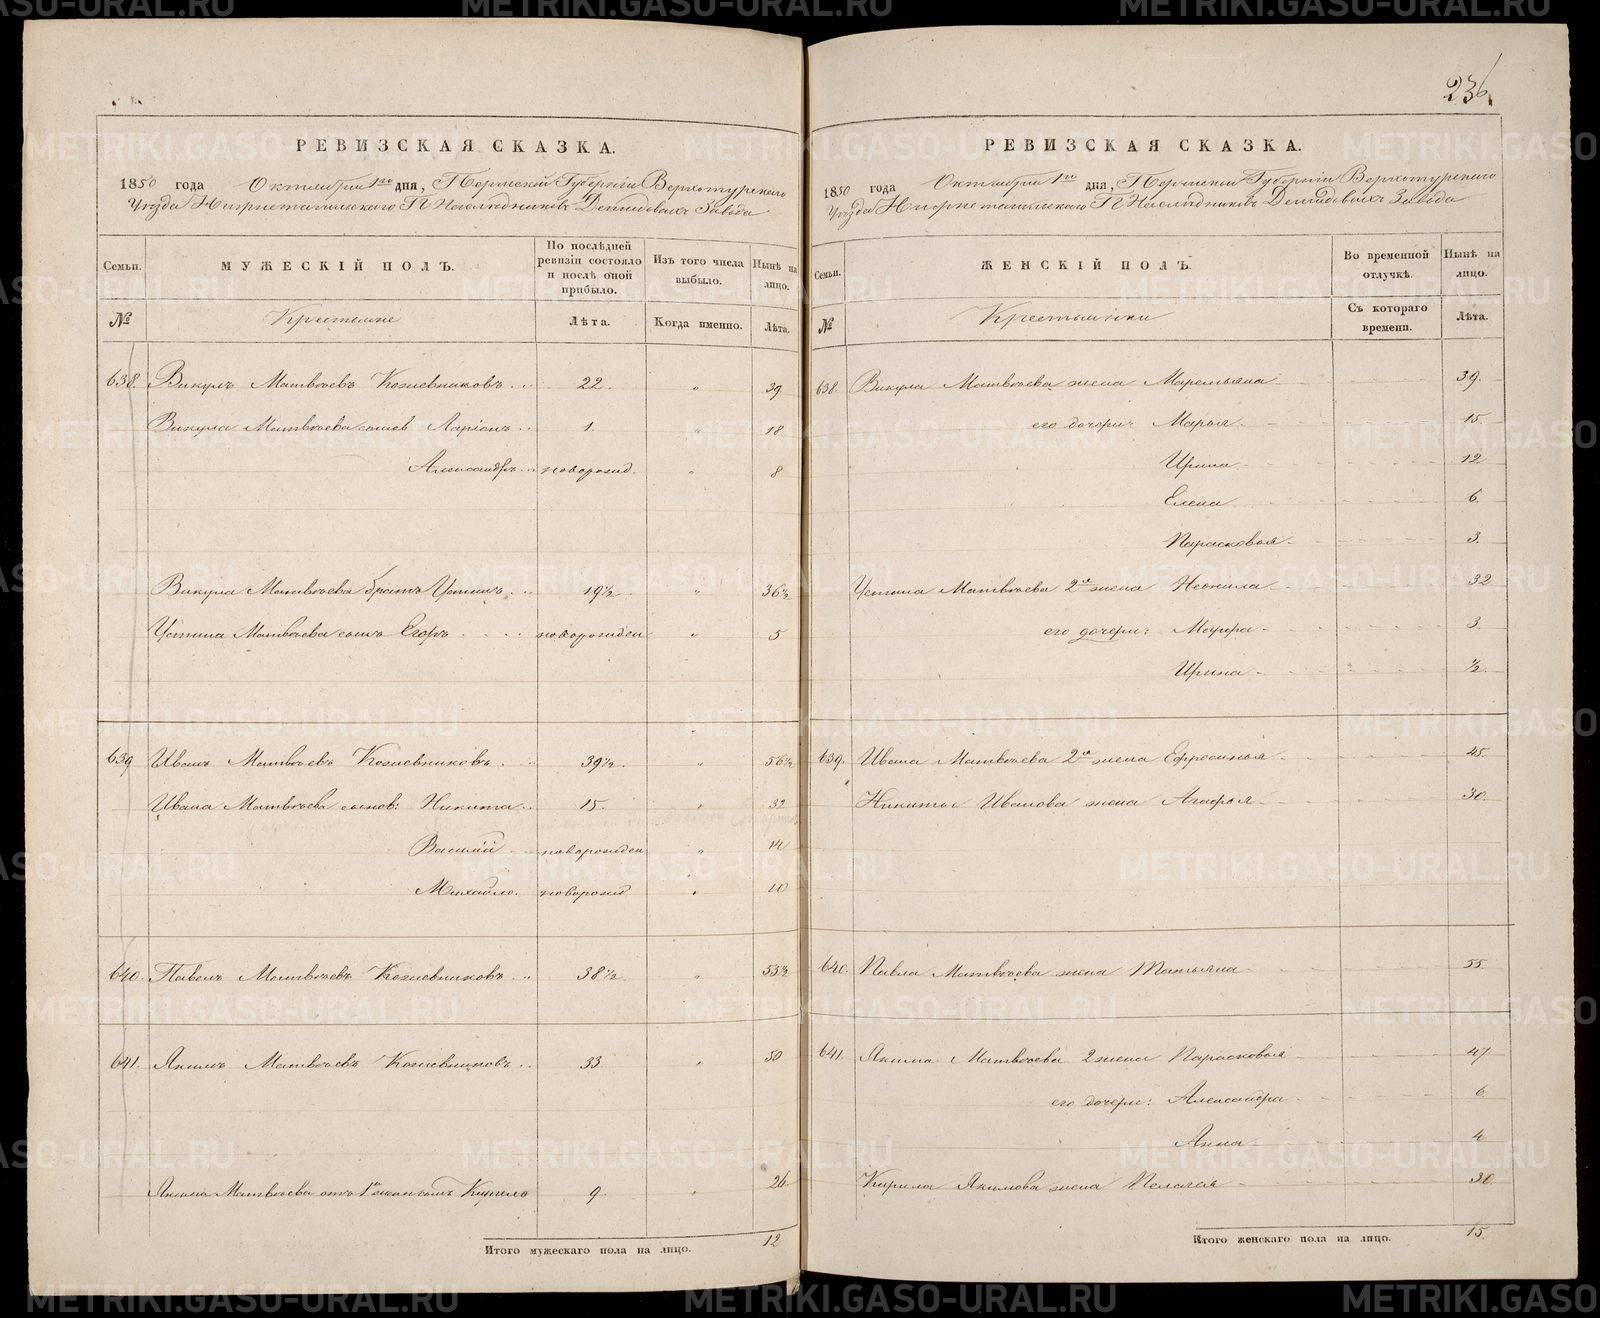 236.
РЕВИЗСКАЯ СКАЗКА.
1850 года Октября 1го дня, Пермской Губерніи Верхотурскаго
Уѣзда Нижнетагильскаго П. Наслѣдниковъ Демидовыхъ Завода
Семьи.
МУЖЕСКІЙ ПОЛЪ.
По послѣдней ревизіи состояло и послѣ оной прибыло.
Изъ того числа выбыло.
Нынѣ на лицо.
№
Крестьяне
Лѣта.
Когда именно.
Лѣта.
638. Викулъ Матвѣевъ Кожевниковъ 22. " 39
Викула Матвѣева сынов Ларіонъ 1. " 18
Александръ новорожд. " 8
Викула Матвѣева братъ Устинъ 19½ " 36½
Устина Матвѣева сынъ Егоръ новорожден " 5
639 Иванъ Матвѣевъ Кожевниковъ 39½ " 56½
Ивана Матвѣева сынов: Никита 15. " 32
Василій новорожден " 14
Михайло. новорожд " 10
640. Павелъ Матвѣевъ Кожевниковъ 38½ " 55½
641. Якимъ Матвѣевъ Кожевниковъ 33 " 50
Якима Матвѣева отъ 1й жены сынъ Кирило 9. " 26
Итого мужескаго пола на лицо. 12
РЕВИЗСКАЯ СКАЗКА.
1850 года Октября 1го дня, Пермской Губерніи Верхотурскаго
Уѣзда Нижнетагильскаго П. Наслѣдниковъ Демидовыхъ Завода
Семьи.
ЖЕНСКІЙ ПОЛЪ.
Во временной отлучкѣ.
Нынѣ на лицо.
№
Крестьянки
Съ котораго времени.
Лѣта.
638. Викула Матвѣева жена Маремьяна 39.
его дочери: Марья 15.
Ирина 12
Елена 6.
Парасковья 3.
Устина Матвѣева 2я жена Неонила 32
его дочери: Мавра 3.
Ирина ½
639. Ивана Матвѣева 2я жена Ефросинья 45.
Никиты Иванова жена Агафья 30.
640. Павла Матвѣева жена Татьяна 55.
641. Якима Матвѣева 2 жена Парасковья 47
его дочери: Александра 6.
Анна 4
Кирила Якимова жена Пелагея 30
Итого женскаго пола на лицо. 15.
METRIKI.GASO-URAL.RU